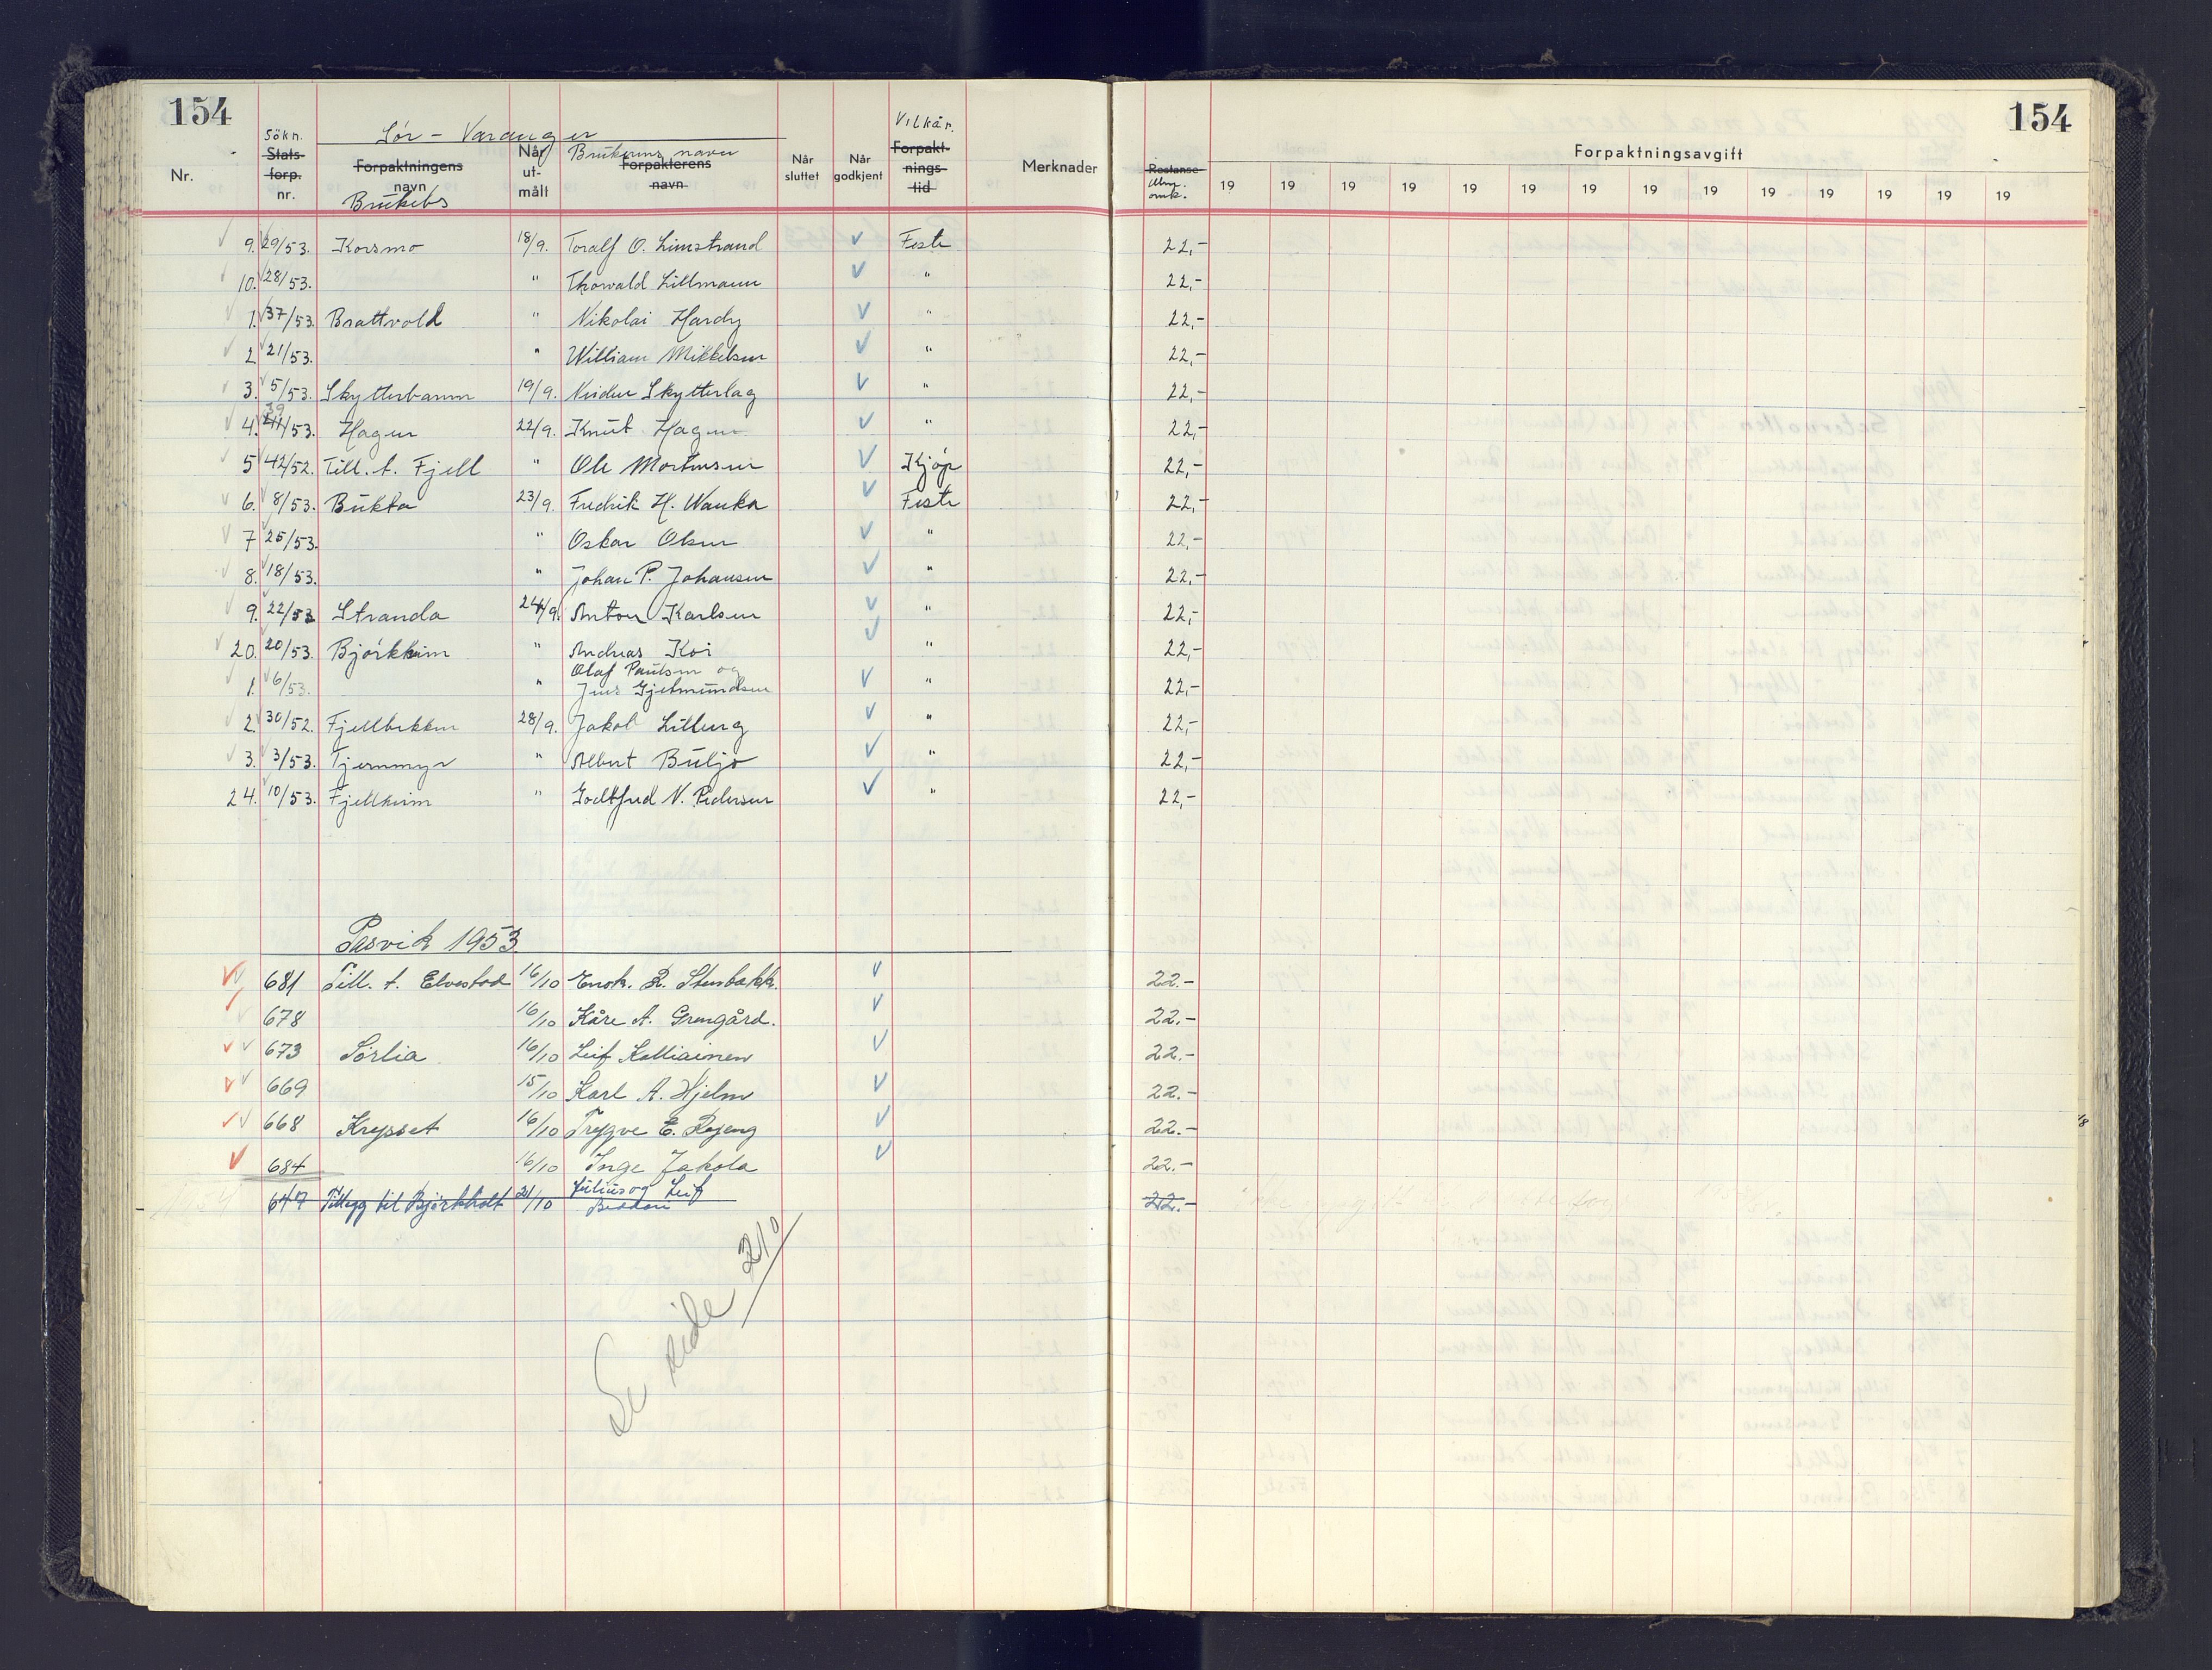 154
154
Sør - Varanger
Nr.
Søkn.
Stats-
forp.
nr.
Forpaktningens
navn
Brukets
Når
ut-
målt
Brukerens navn
Forpakterens
navn
Når
sluttet
Når
godkjent
Vilkår.
Forpakt-
nings-
tid
Merknader
Restanse
omk.
Forpaktningsavgift
19 19 19 19 19 19 19 19 19 19 19 19 19 19
9. 29/53. Korsmo 18/9. Toralf O. Limstrand Feste 22,-
10. 28/53. " Thorvald Lillmann " 22,-
1. 37/53. Brattvold " Nikolai Hardy " 22,-
2 21/53. " William Mikkelsen " 22,-
3. 5/53. Skytterbanen 19/9. Neiden Skytterlag " 22,-
4. 39/53. Hagen 22/9. Knut Hagen " 22,-
5 42/52. Till. t. Fjell " Ole Mortensen Kjøp 22,-
6. 8/53. Bukta 23/9. Fredrik H. Wauka Feste 22,-
7 25/53. " Oskar Olsen " 22,-
8. 18/53. " Johan P. Johansen " 22,-
9. 22/53 Stranda 24/9. Anton Karlsen " 22,-
20. 20/53. Bjørkheim " Andreas Koi " 22,-
Olaf Paulsen og
1. 6/53. " Jens Gjetmundsen " 22,-
2. 30/52. Fjellbekken 28/9. Jakob Lilleng " 22,-
3. 3/53. Tjernmyr " Albert Buljo " 22,-
24. 10/53. Fjellheim " Godtfred N. Pedersen " 22,-
Pasvik 1953
681 Till. t. Elvestad 16/10 Enok. R. Stenbakk. 22.-
678 16/10 Kåre A. Grengård. 22.-
673 Sørlia 16/10 Leif Kalliainen 22.-
669 15/10 Karl A. Hjelm 22.-
668 Krysset 16/10 Trygve E. Røjeng 22.-
684 16/10 Inge Jakola 22.-
647 Tillegg til Bjørkholt 21/10 Julius og Leif 22.-
Beddari
Se side 210